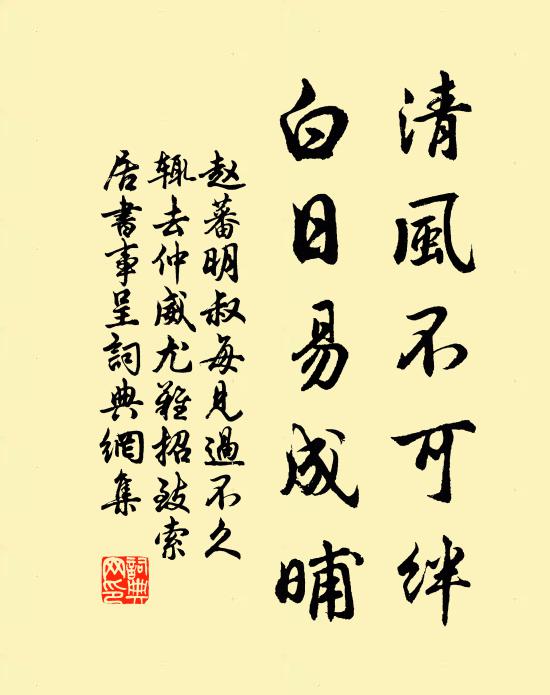 清風不可絆
白日易成晡
赵蕃明叔每見過不久
輒去仲威尤難招致索
居書事呈詞典網集
詞典
网印